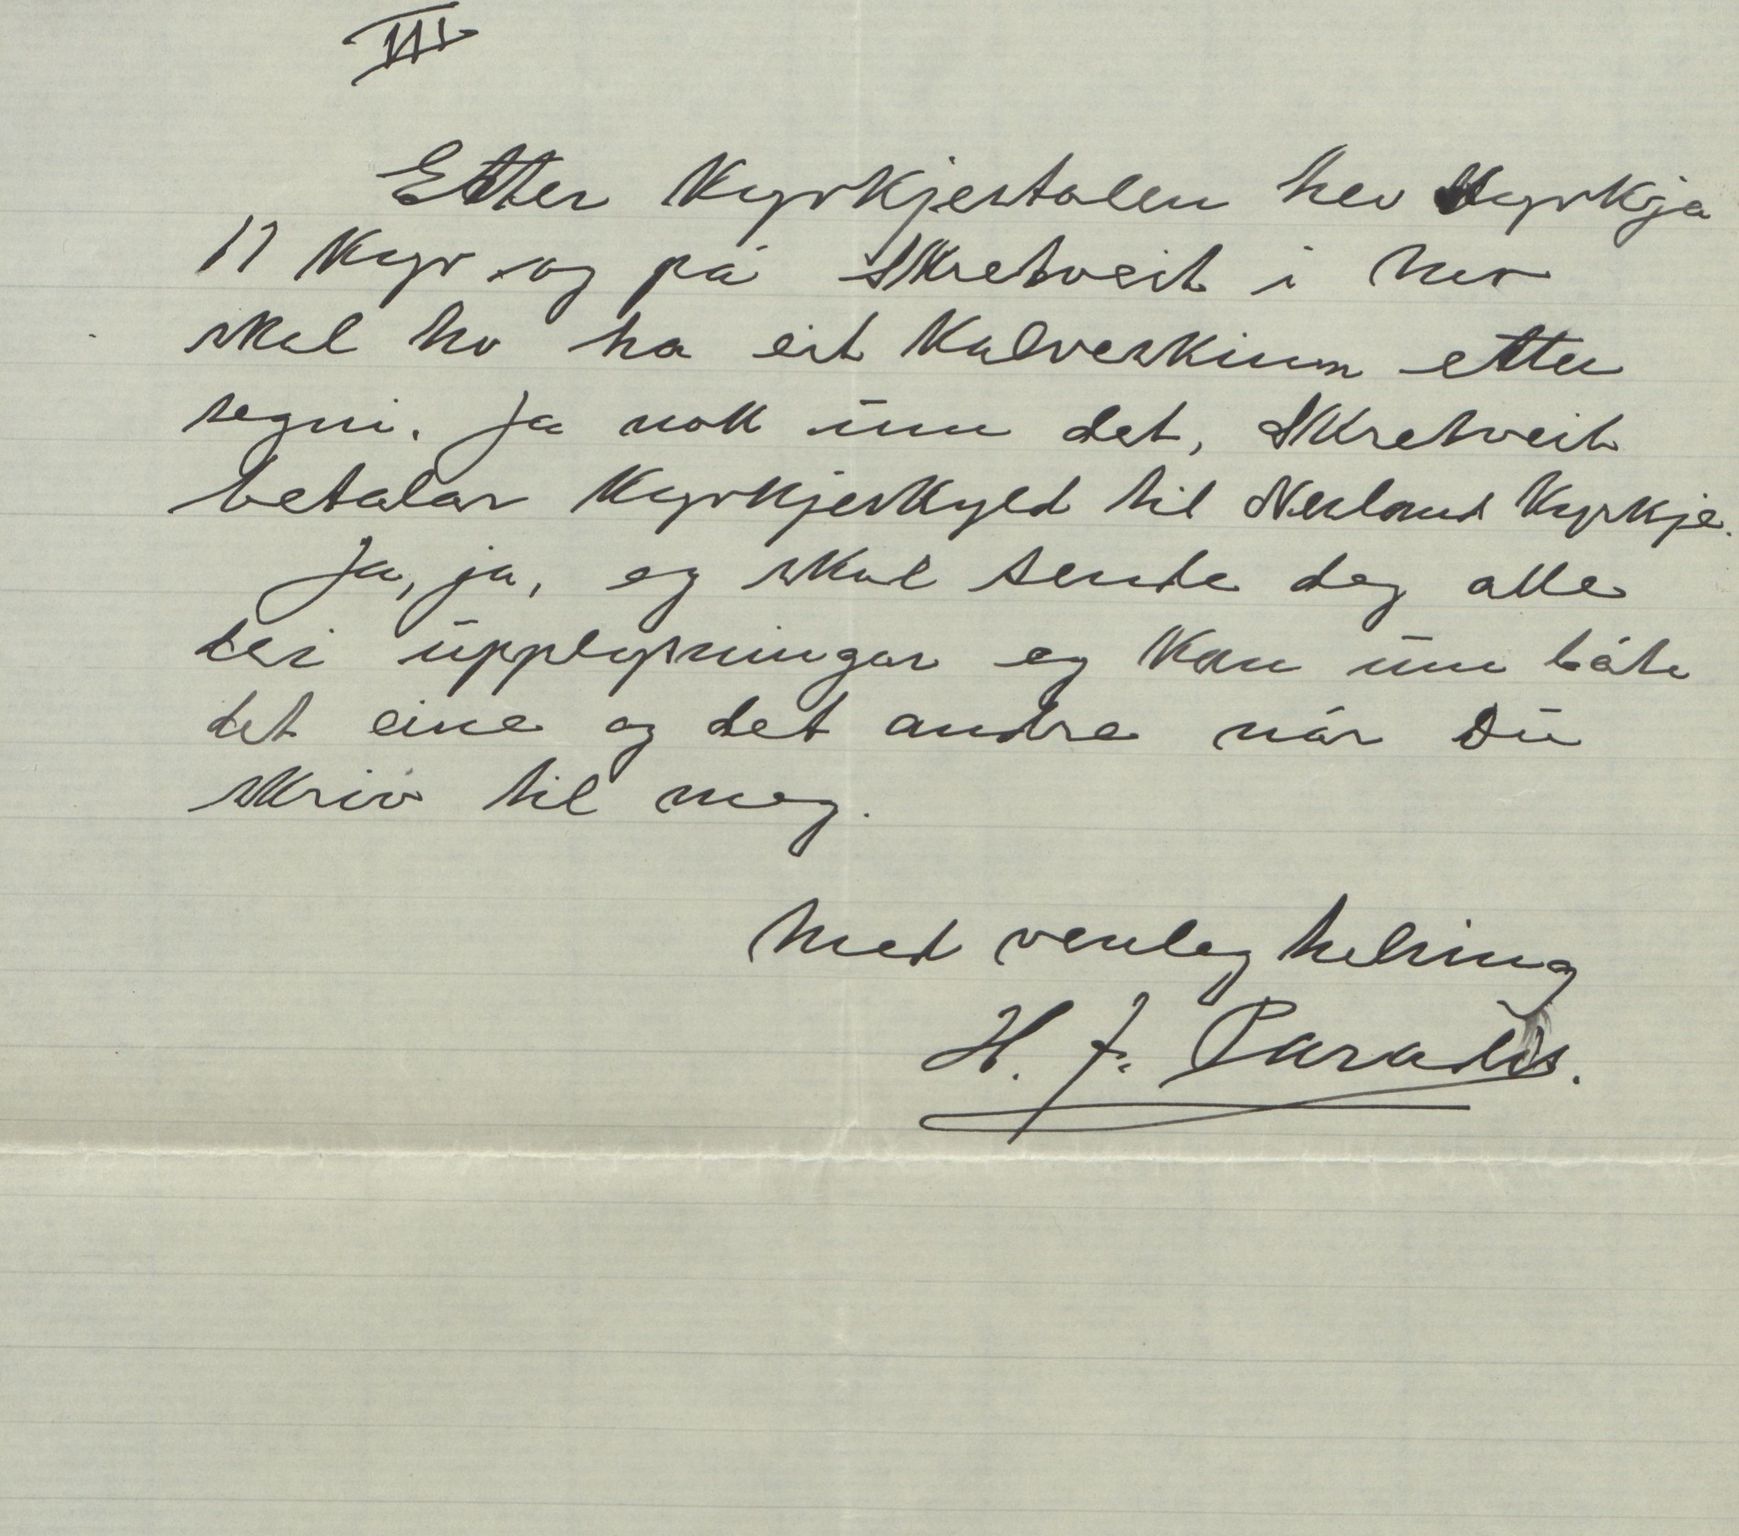 III
Etter Kyrkjestolen hev Kyrkja
17 Kyr og på Skretveit i
skal ho ha eit Kalveskinn etter
segni. Ja nok um det, Skretveit
betalar Kyrkjeskyld til Nesland Kyrkje.
Ja, ja, eg skal sende deg alle
dei upplysningar eg Kan um båte
det eine og det andre når Du
skriv til meg.
Med venleg helsing
H. J. Paradis.